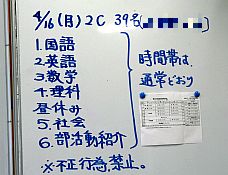 4/16(月)2C 39名(
1.国語
2.英語
3.数学
4.理科
昼休み
5.社会
6.部活動紹介
時間帯は、
通常どおり
※不正行為、禁止。